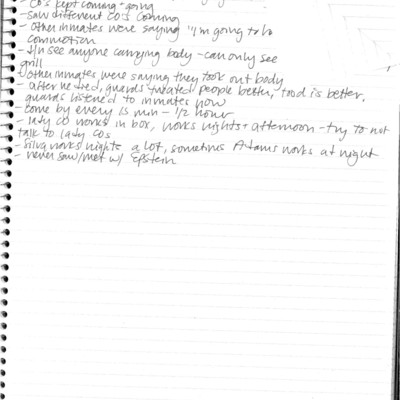 - CO's kept coming + going
- saw different CO's coming
- other inmates were saying "I'm going to
commotion
- see anyone carrying body - can only see
grill
- other inmates were saying they took out body
- after he died, guards treated people better, food is better,
guards listened to inmates now
- come by every 15 min - 1/2 hour
- lady CO works in box, works nights + afternoon - try to not
talk to lady COs
- Silva works nights a lot, sometimes Adams works at night
- never saw/met w/ Epstein